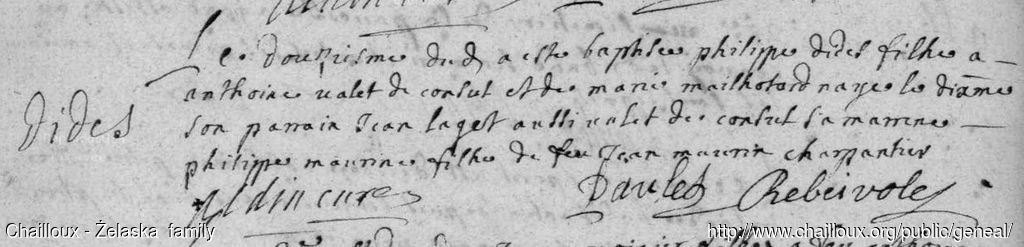 Le douziesme dud a este baptisee philippe dides filhe a
anthoine valet de consul et de marie mailhotard naye le dixme
Dides
son parrain Jean laget aussi valet de consul sa marrene
philippe maurine filhe de feu Jean maurin charpantier
cure Daules Rebeirolles
Chailloux - Żelaska family
http://www.chailloux.org/public/geneal/